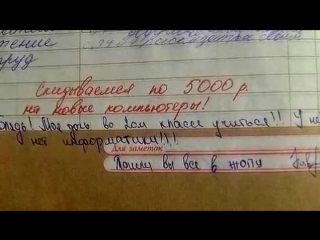 жение
руд
Скидываемся по 5000 р.
на новые компьютеры!
Моя дочь во 2ом классе учиться!! У не
нет информатики!!!
Для заметок
Пошли вы все в жопу